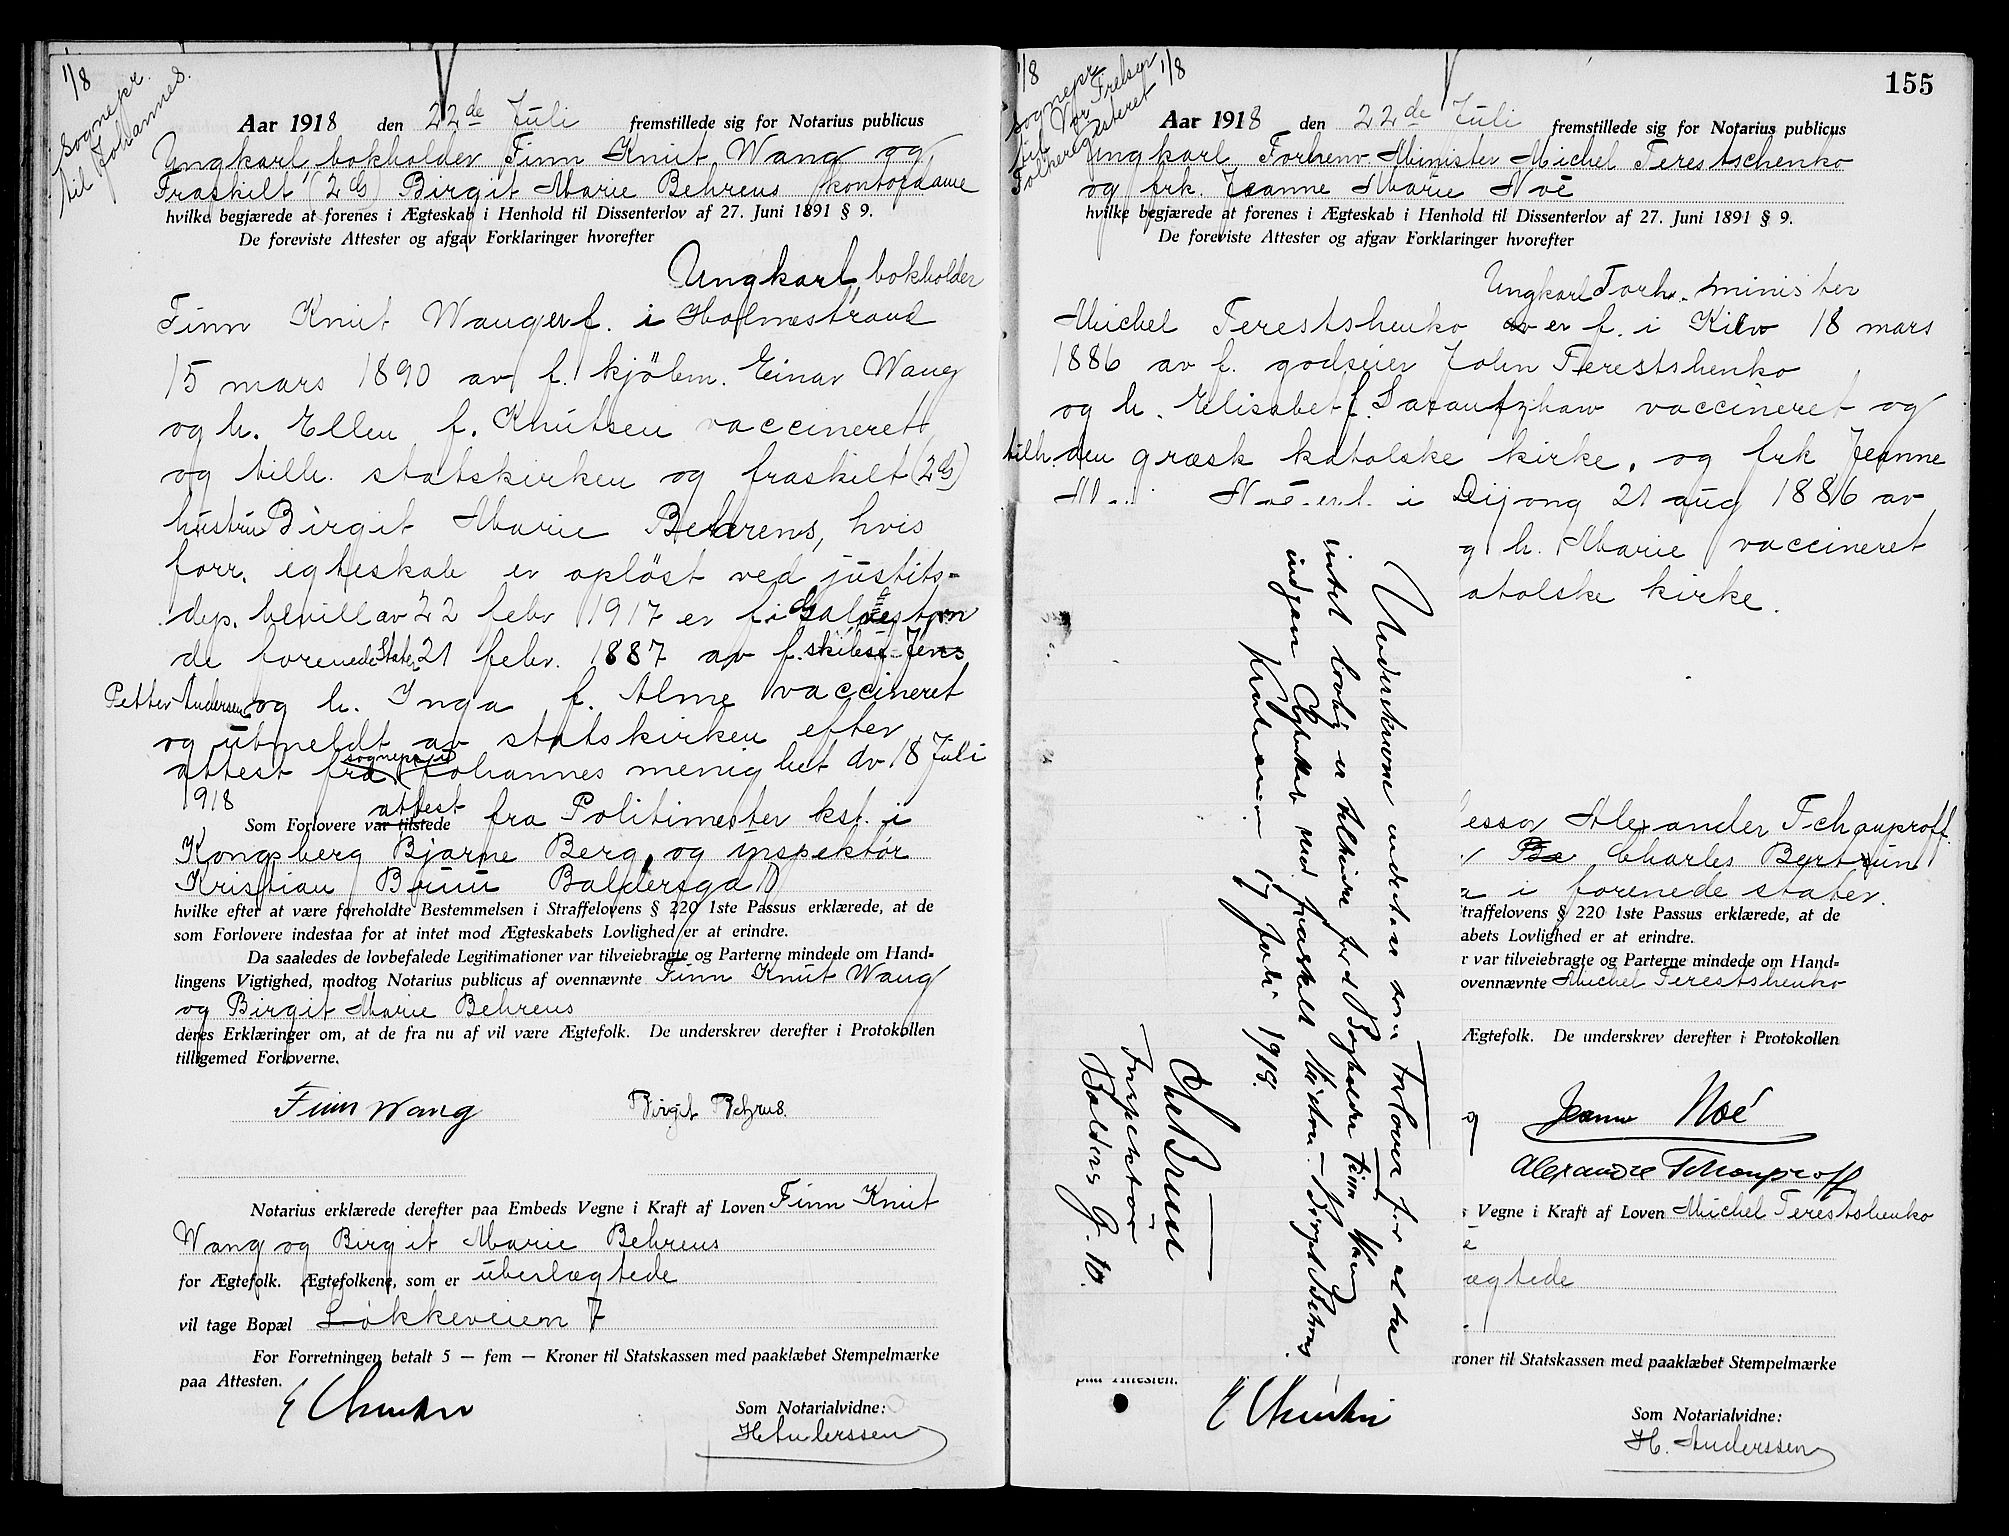 1/8
Sognepr.
til Johannes.
Aar 1918 den 22de Juli fremstillede sig for Notarius publicus
Ungkarl, bokholder Finn Knut Wang og
Fraskilt (2 G) Birgit Marie Behrens kontordame
hvilke begjærede at forenes i Ægteskab i Henhold til Dissenterlov af 27. Juni 1891 § 9.
De foreviste Attester og afgav Forklaringer hvorefter
Ungkarl, bokholder
Finn Knut Wang er f. i Holmestrand
15 mars 1890 av f. kjöbm. Einar Wang
og h. Ellen f. Knutsen vaccineret
og tilh. statskirken og fraskilt (2 G)
hustru Birgit Marie Behrens, hvis
forr. egteskab er oplöst ved justits-
dep. bevill av 22 febr 1917 er f. i Galveston
de forenede Stater 21 febr. 1887 av f. skibsf. Jens
Petter Andersen og h. Inga f. Alme vaccineret
og utmeldt av statskirken efter
attest fra sognepr. i Johannes menighet av 18 Juli
1918
Som Forlovere var tilstede attest fra Politimester kst. i
Kongsberg Bjarne Berg og inspektör
Kristian Bruun Baldersgd 10
hvilke efter at være foreholdte Bestemmelsen i Straffelovens § 220 1ste Passus erklærede, at de
som Forlovere indestaa for at intet mod Ægteskabets Lovlighed er at erindre.
Da saaledes de lovbefalede Legitimationer var tilveiebragte og Parterne mindede om Hand-
lingens Vigtighed, modtog Notarius publicus af ovennævnte Finn Knut Wang
og Birgit Marie Behrens
deres Erklæringer om, at de fra nu af vil være Ægtefolk. De underskrev derefter i Protokollen
tilligemed Forloverne.
Finn Wang Birgit Behrens.
Notarius erklærede derefter paa Embeds Vegne i Kraft af Loven Finn Knut
Wang og Birgit Marie Behrens
for Ægtefolk. Ægtefolkene, som er uberlægtede
vil tage Bopæl Løkkeveien 7
For Forretningen betalt 5 — fem — Kroner til Statskassen med paaklæbet Stempelmærke
paa Attesten.
Som Notarialvidne:
H. Anderssen
155
1/8
sognepr
til Vor Frelser 1/8
Folkeregisteret
Aar 1918 den 22de Juli fremstillede sig for Notarius publicus
Ungkarl Forhenv Minister Michel Terestschenko
og frk. Jeanne Marie Noë
hvilke begjærede at forenes i Ægteskab i Henhold til Dissenterlov af 27. Juni 1891 § 9.
De foreviste Attester og afgav Forklaringer hvorefter
Ungkarl Forh. minister
Michel Terestshenko er f. i Kiew 18 mars
1886 av f. godseier John Terestshenko
og h. Elisabet f. vaccineret og
tilh. den græsk katolske kirke. og frk Jeanne
Noë er f. i Dijong 21 aug 1886 av
g h. Marie vaccineret
atolske kirke.
Underskrevne indestaar som Forlover for at der
intet lovlig er tilhinder for at Bogholder Finn Wang
indgaar Ægteskab med fraskilt Birgit Behrens.
Kristiania 17 Juli 1918.
Chr Bruun
Inspektör
Balders G. 10.
essor Alexander Tchouproff.
Charles Bertrun
a i forenede stater.
traffelovens § 220 1ste Passus erklærede, at de
abets Lovlighed er at erindre.
r var tilveiebragte og Parterne mindede om Hand-
ovennævnte Michel Terestshenko
Ægtefolk. De underskrev derefter i Protokollen
Jeanne Noé
Alexandre Tchouproff
s Vegne i Kraft af Loven Michel Terestshenko
ë
ægtede
roner til Statskassen med paaklæbet Stempelmærke
paa Attesten.
Som Notarialvidne:
H. Anderssen